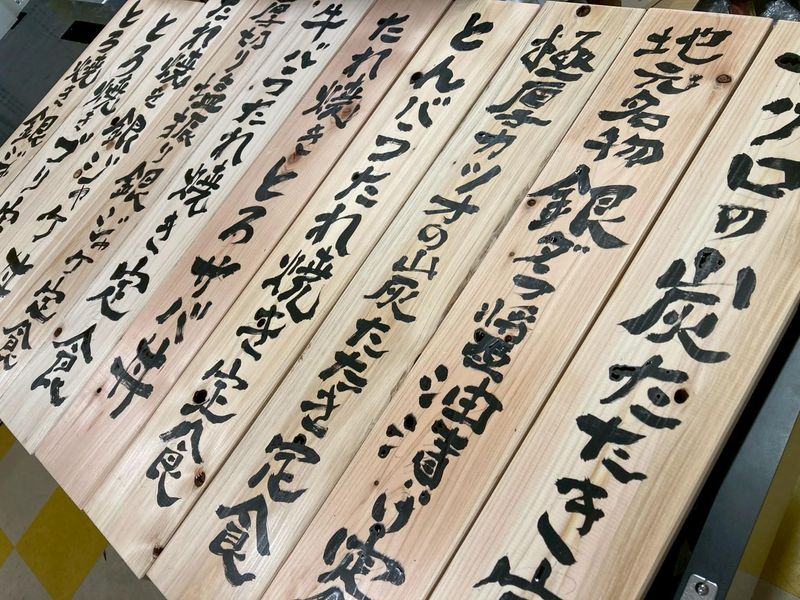 グロの炭たたき
地元名物 銀ダラ醤油漬け定
極厚カツオの炭たたき定食
とんバラたれ焼き定食
たれ焼きとろサバ丼
牛バラたれ焼き定食
厚切り塩振り銀ジャケ定食
たれ焼き銀ジャケ定食
とろ焼きブリ
とろ焼き銀ジャ